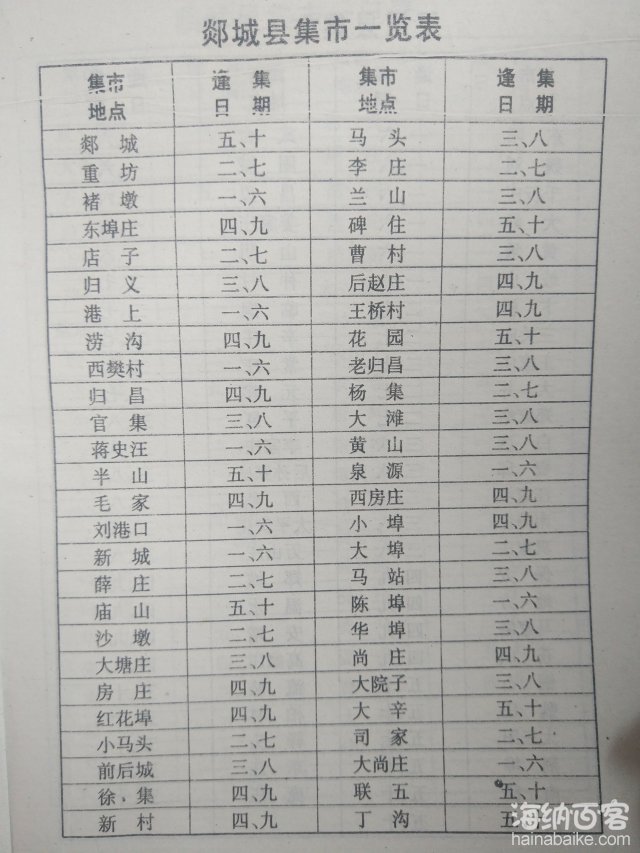 郯城县集市一览表
集市地点 逢集日期 集市地点 逢集日期
郯城 五、十 马头 三、八
重坊 二、七 李庄 二、七
褚墩 一、六 兰山 三、八
东埠庄 四、九 碑住 五、十
店子 二、七 曹村 三、八
归义 三、八 后赵庄 四、九
港上 一、六 王桥村 四、九
涝沟 四、九 花园 五、十
西樊村 一、六 老归昌 三、八
归昌 四、九 杨集 二、七
官集 三、八 大滩 三、八
蒋史汪 一、六 黄山 三、八
半山 五、十 泉源 一、六
毛家 四、九 西房庄 四、九
刘港口 一、六 小埠 四、九
新城 一、六 大埠 二、七
薛庄 二、七 马站 三、八
庙山 五、十 陈埠 一、六
沙墩 二、七 华埠 三、八
大塘庄 三、八 尚庄 四、九
房庄 四、九 大院子 三、八
红花埠 四、九 大辛 五、十
小马头 二、七 司家 二、七
前后城 三、八 大尚庄 一、六
徐集 四、九 联五 五、十
新村 四、九 丁沟 五
海纳百客
hainabaike.com